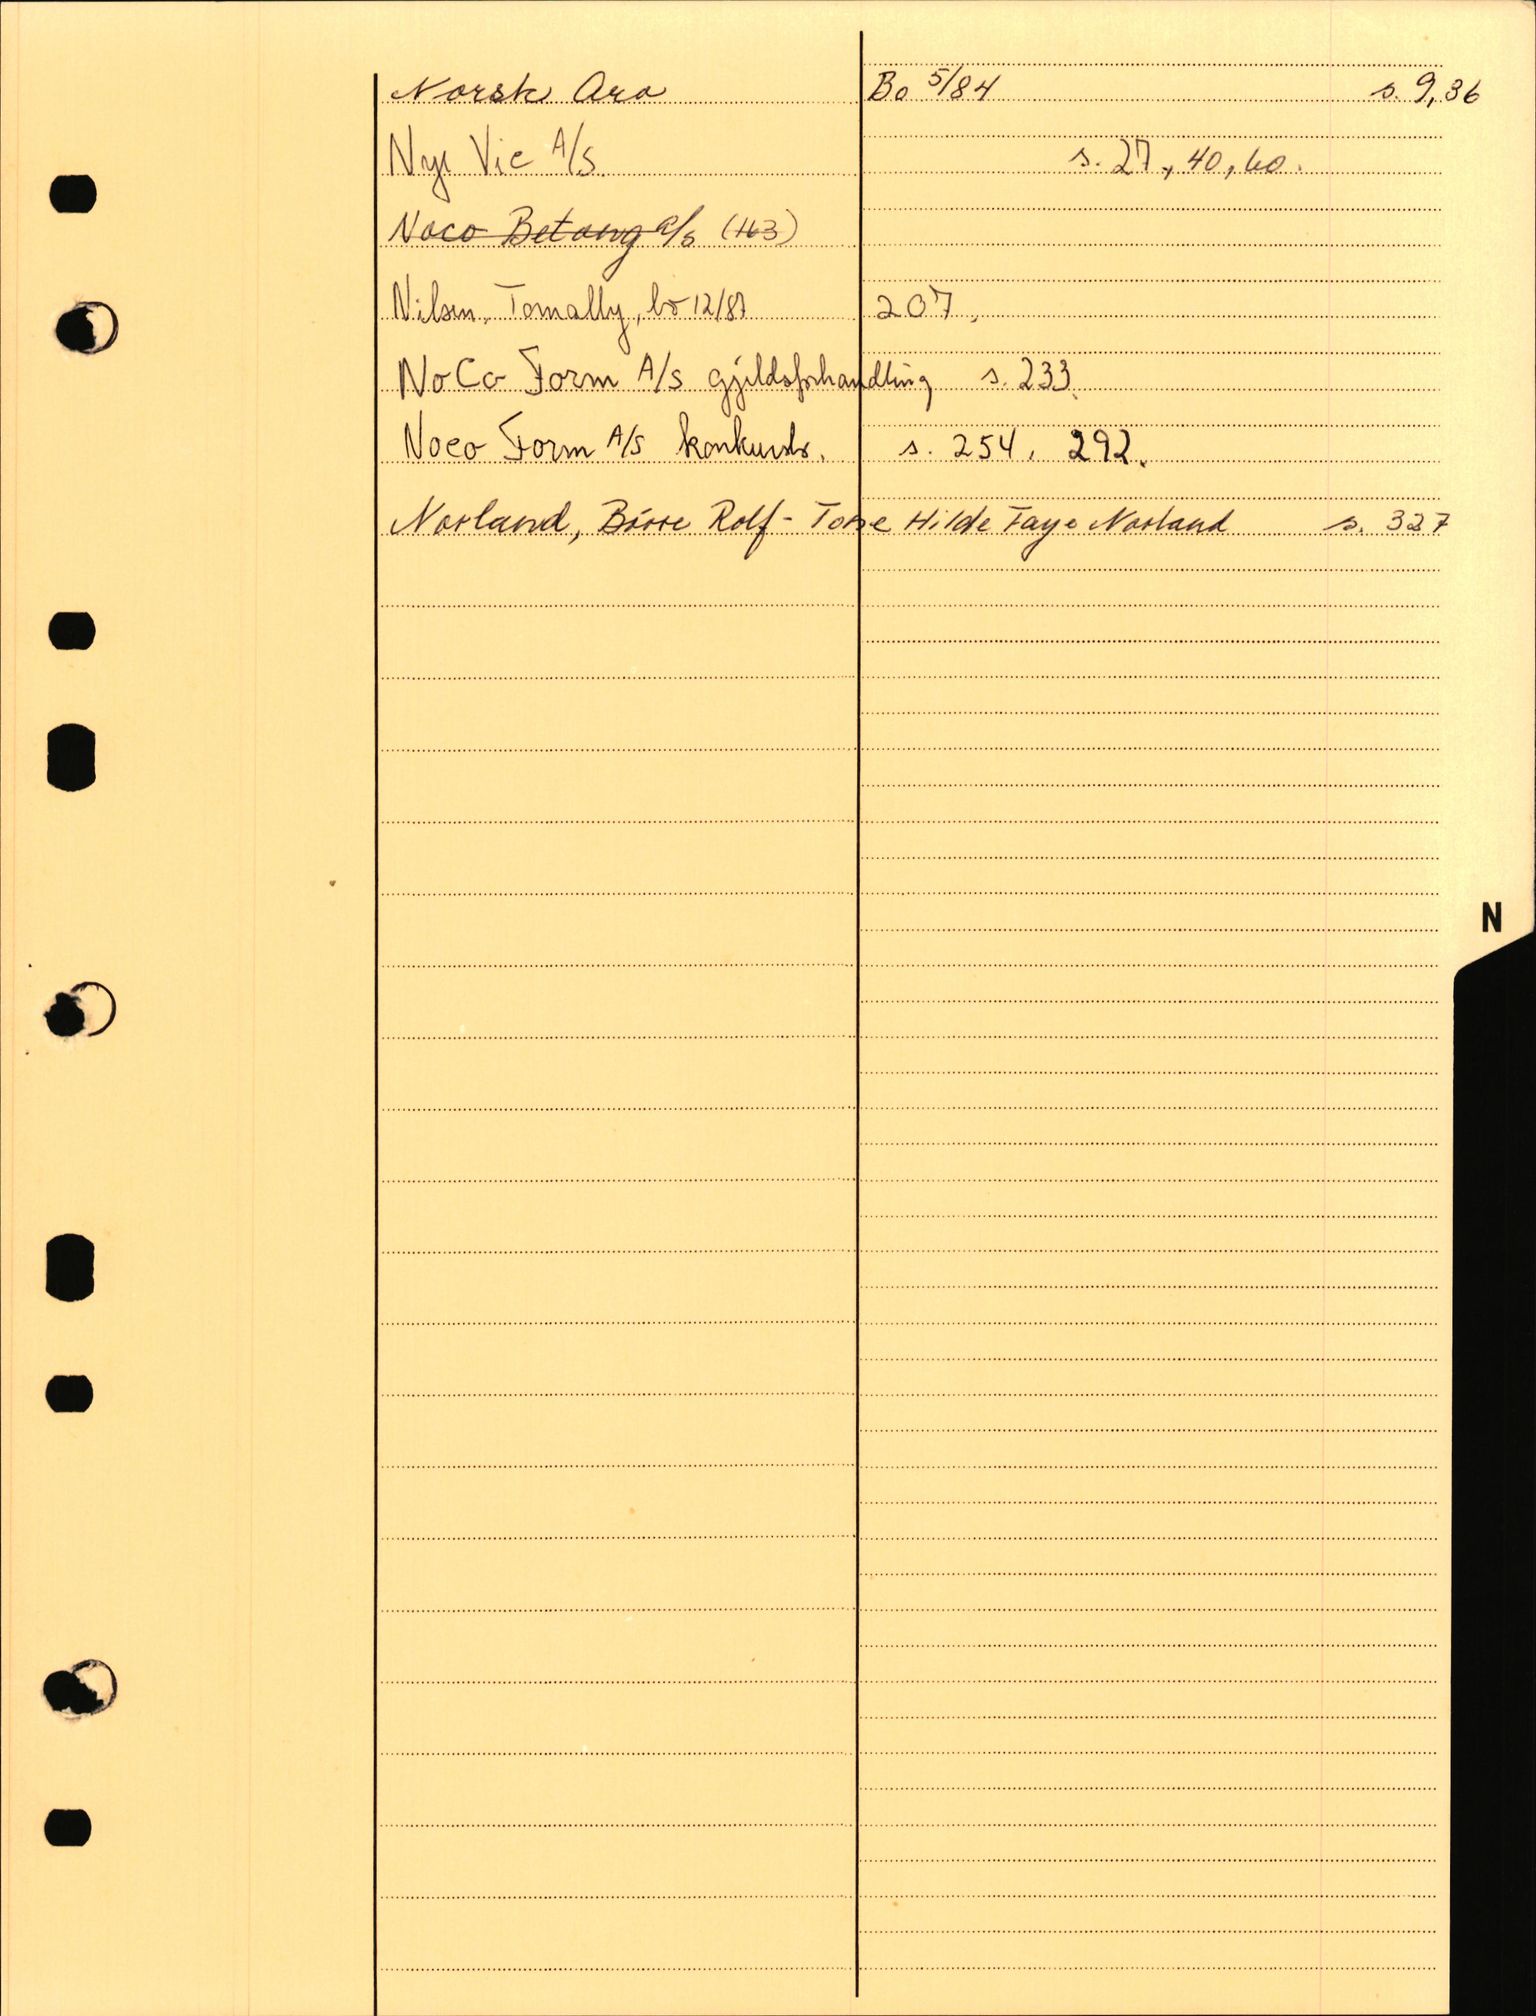 Norsk Aro Bo 5/84 s. 9, 36
Nye Vic A/S. s. 27, 40, 60.
Noco Betong a/s (163)
Nilsen, Tomally, bo 12/87 207,
NoCo Form A/S gjeldsforhandling s. 233.
Noco Form A/S konkursbo. s. 254, 292.
Norland, Börre Rolf - Tone Hilde Faye Norland s. 327
N